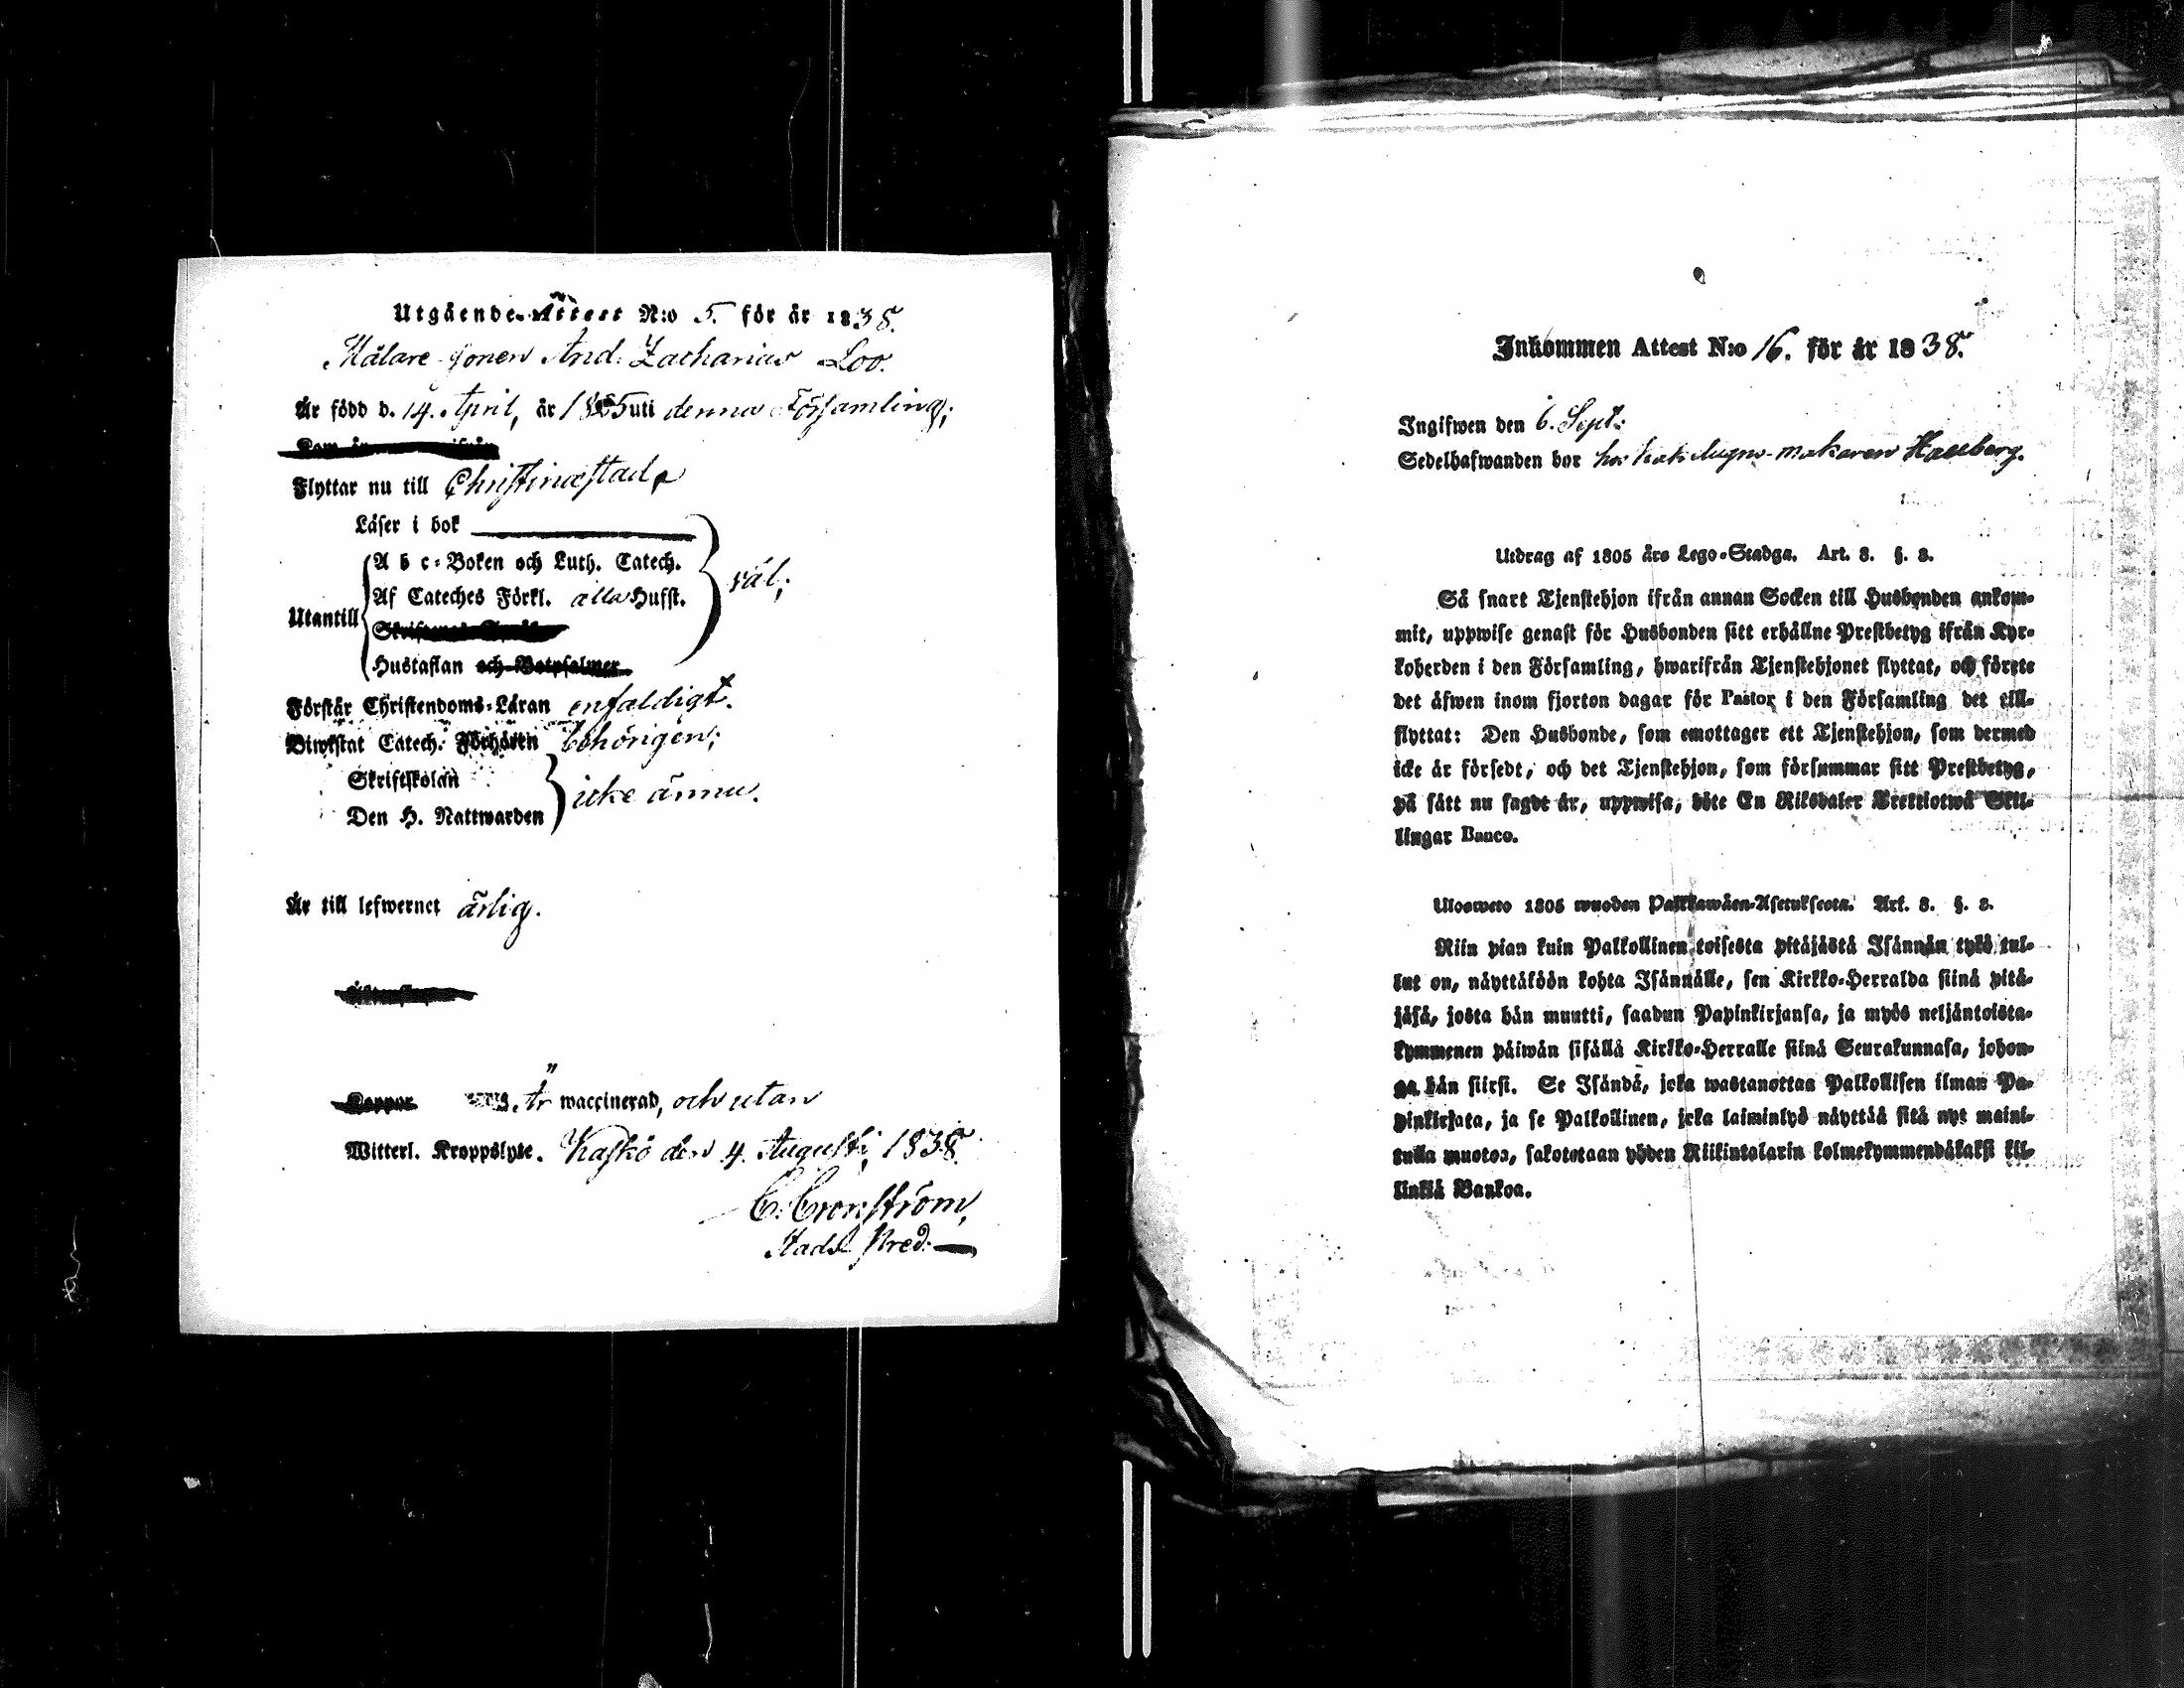 Utgående Attest N:o 5. för år 1838.
Målare-sonen And. Zacharias Loo.
Är född d. 14. April, år uti denna Församling;
Flyttar nu till Christinæstad
Läser i bok
A b c-Boken och Luth. Catech.
Af Cateches Förkl. alla Hufst.
väl;
Utantill
Hustaflan och Botpsalmer
Förstår Christendoms-Läran enfaldigt.
Biwistat Catech. Förhören behörigen;
Skriftskolan
Den H. Nattwarden
icke ännu.
Är till lefwernet ärlig.
Koppor Är waccinerad, och utan
Witterl. Kroppslyte. Kaskö den 4. Augusti, 1838.
C. Cronström,
Stads Pred.
Inkommen Attest N:o 16. för år 1838.
Ingifwen den 6. Sept:
Sedelhafwanden bor hos kakelugns-makaren
Utdrag af 1805 års Lego-Stadga. Art. 8. §. 8.
Så snart Tjenstehjon ifrån annan Socken till Husbonden ankom-
mit, uppwise genast för Husbonden sitt erhållne Prestbetyg ifrån Kyr-
koherden i den Församling, hwarifrån Tjenstehjonet flyttat, och förete
det äfwen inom fjorton dagar för Pastor i den Församling det till-
flyttat: Den Husbonde, som emottager ett Tjenstehjon, som dermed
icke är försedt, och det Tjenstehjon, som försummar sitt Prestbetyg,
på sätt nu sagdt är, uppwisa, böte En Riksdaler Trettiotwå Skil-
lingar Banco.
Ulosweto 1805 wuoden Palkkawäen-Asetuksesta. Art. 8. §. 8.
Niin pian kuin Palkollinen toisesta pitäjästä Isännän tykö tul-
lut on, näyttäköön kohta Isännälle, sen Kirkko-Herralda siinä pitä-
jäsä, josta hän muutti, saadun Papinkirjansa, ja myös neljäntoista-
kymmenen päiwän sisällä Kirkko-Herralle siinä Seurakunnasa, johon-
ga hän siirsi. Se Isändä, joka wastanottaa Palkollisen ilman Pa-
pinkirjata, ja se Palkollinen, joka laiminlyö näyttää sitä nyt maini-
tulla muotoa, sakotetaan yhden Riikintalarin kolmekymmendäkaksi kil-
linkiä Bankoa.